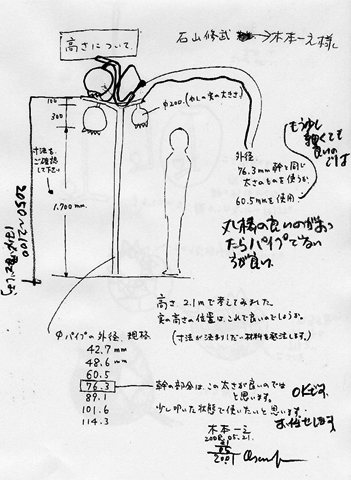 高さについて
石山修武 → 木本一之様
100
300
φ200.(かしの実の大きさ)
寸法を
ご確認
して下さい
1.700 mm
2050〜2100
外径
76.3mm 幹と同じ
太さのものを使うか
60.5mmを使用
もう少し
細くても
良いの
では
丸棒の良いのがあっ
たらパイプでない
方が良い.
高さ 2.1mで考えてみました
実の高さの位置は、これで良いのでしょうか。
(寸法が決まりしだい材料を発注します。)
φパイプの外径、規格
42.7 mm
48.6 mm
60.5
76.3
89.1
101.6
114.3
幹の部分は、この太さが良いのでは
と思います。
少し叩いた状態で使いたいと思います。
OKです.
お任せします
木本一之
2008.05.21.